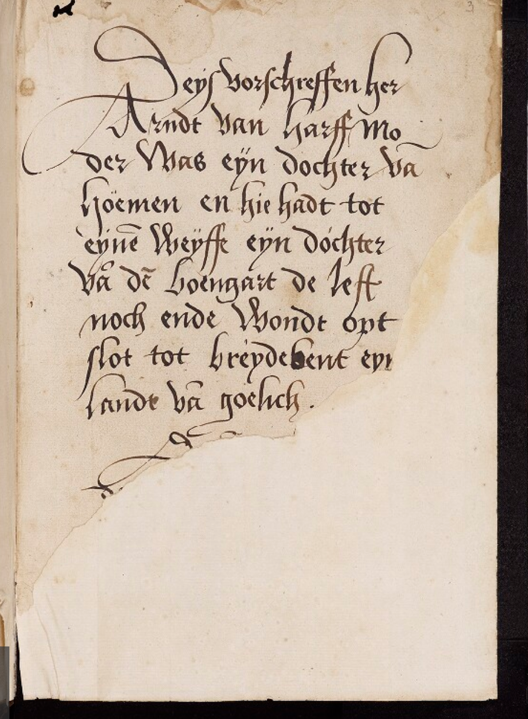 Deys vorschreffen her
Arndt van Harff Mo
der Was eyn dochter vā
höemen en hie hadt tot
eynē Weyffe eyn dochter
vā dē boengart de left
noch ende Wondt opt
slot tot breydebent eyn
lande vā goelich.